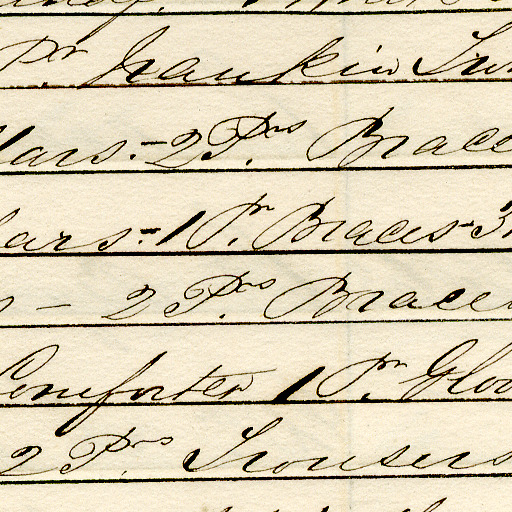 Pr Nankin
lars.- 2 Prs Brace
lars- 1 Pr. Braces- 3
s - 2 Prs Brace
Comforter 1 Pr. Glo
2 Prs Trousers